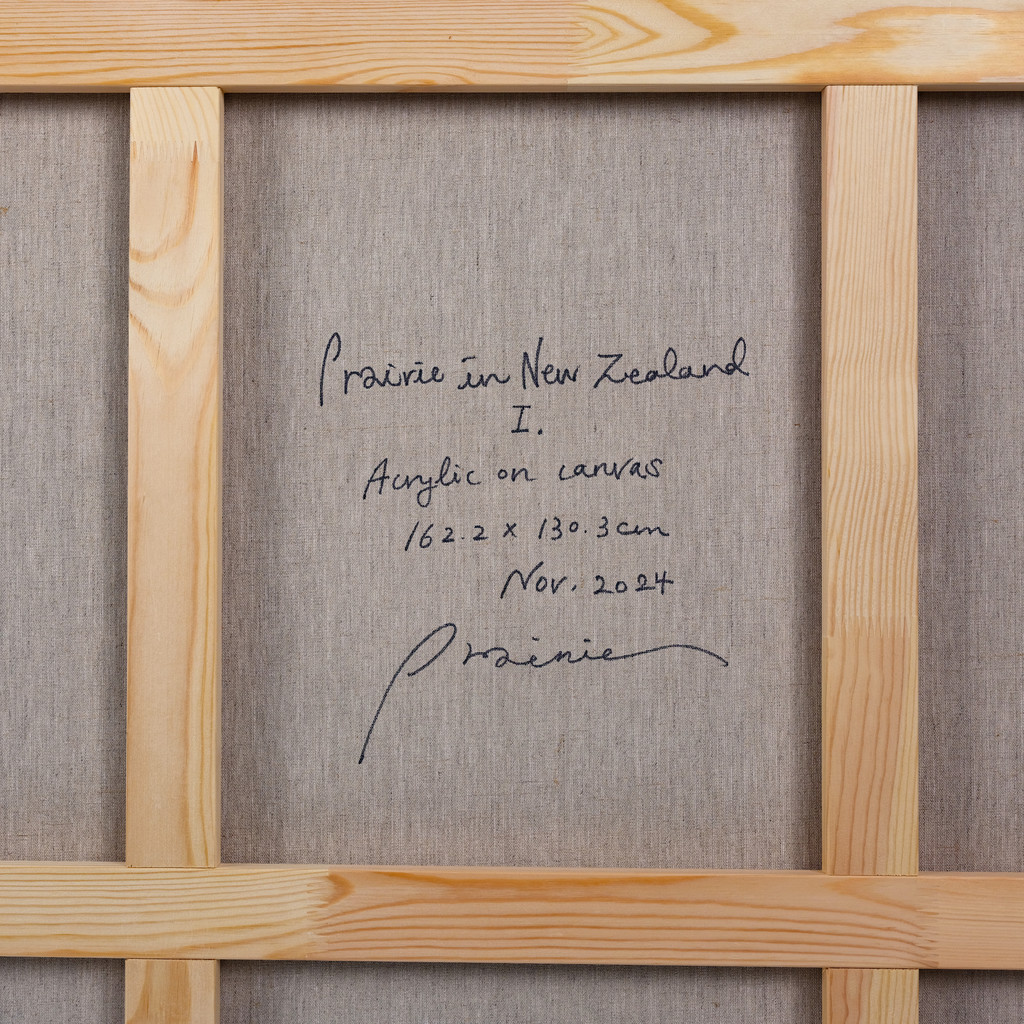 Prairie in New Zealand
I.
Acrylic on canvas
162.2 x 130.3cm
Nov. 2024
Prairie